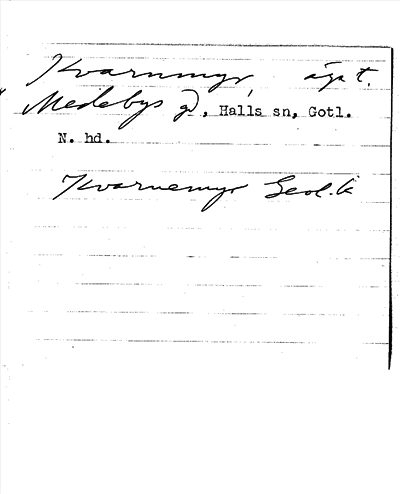 Kvarnmyr, äga t.
Medebys gd, Halls sn, Gotl.
N. hd.
Kvarnemyr Geol. k